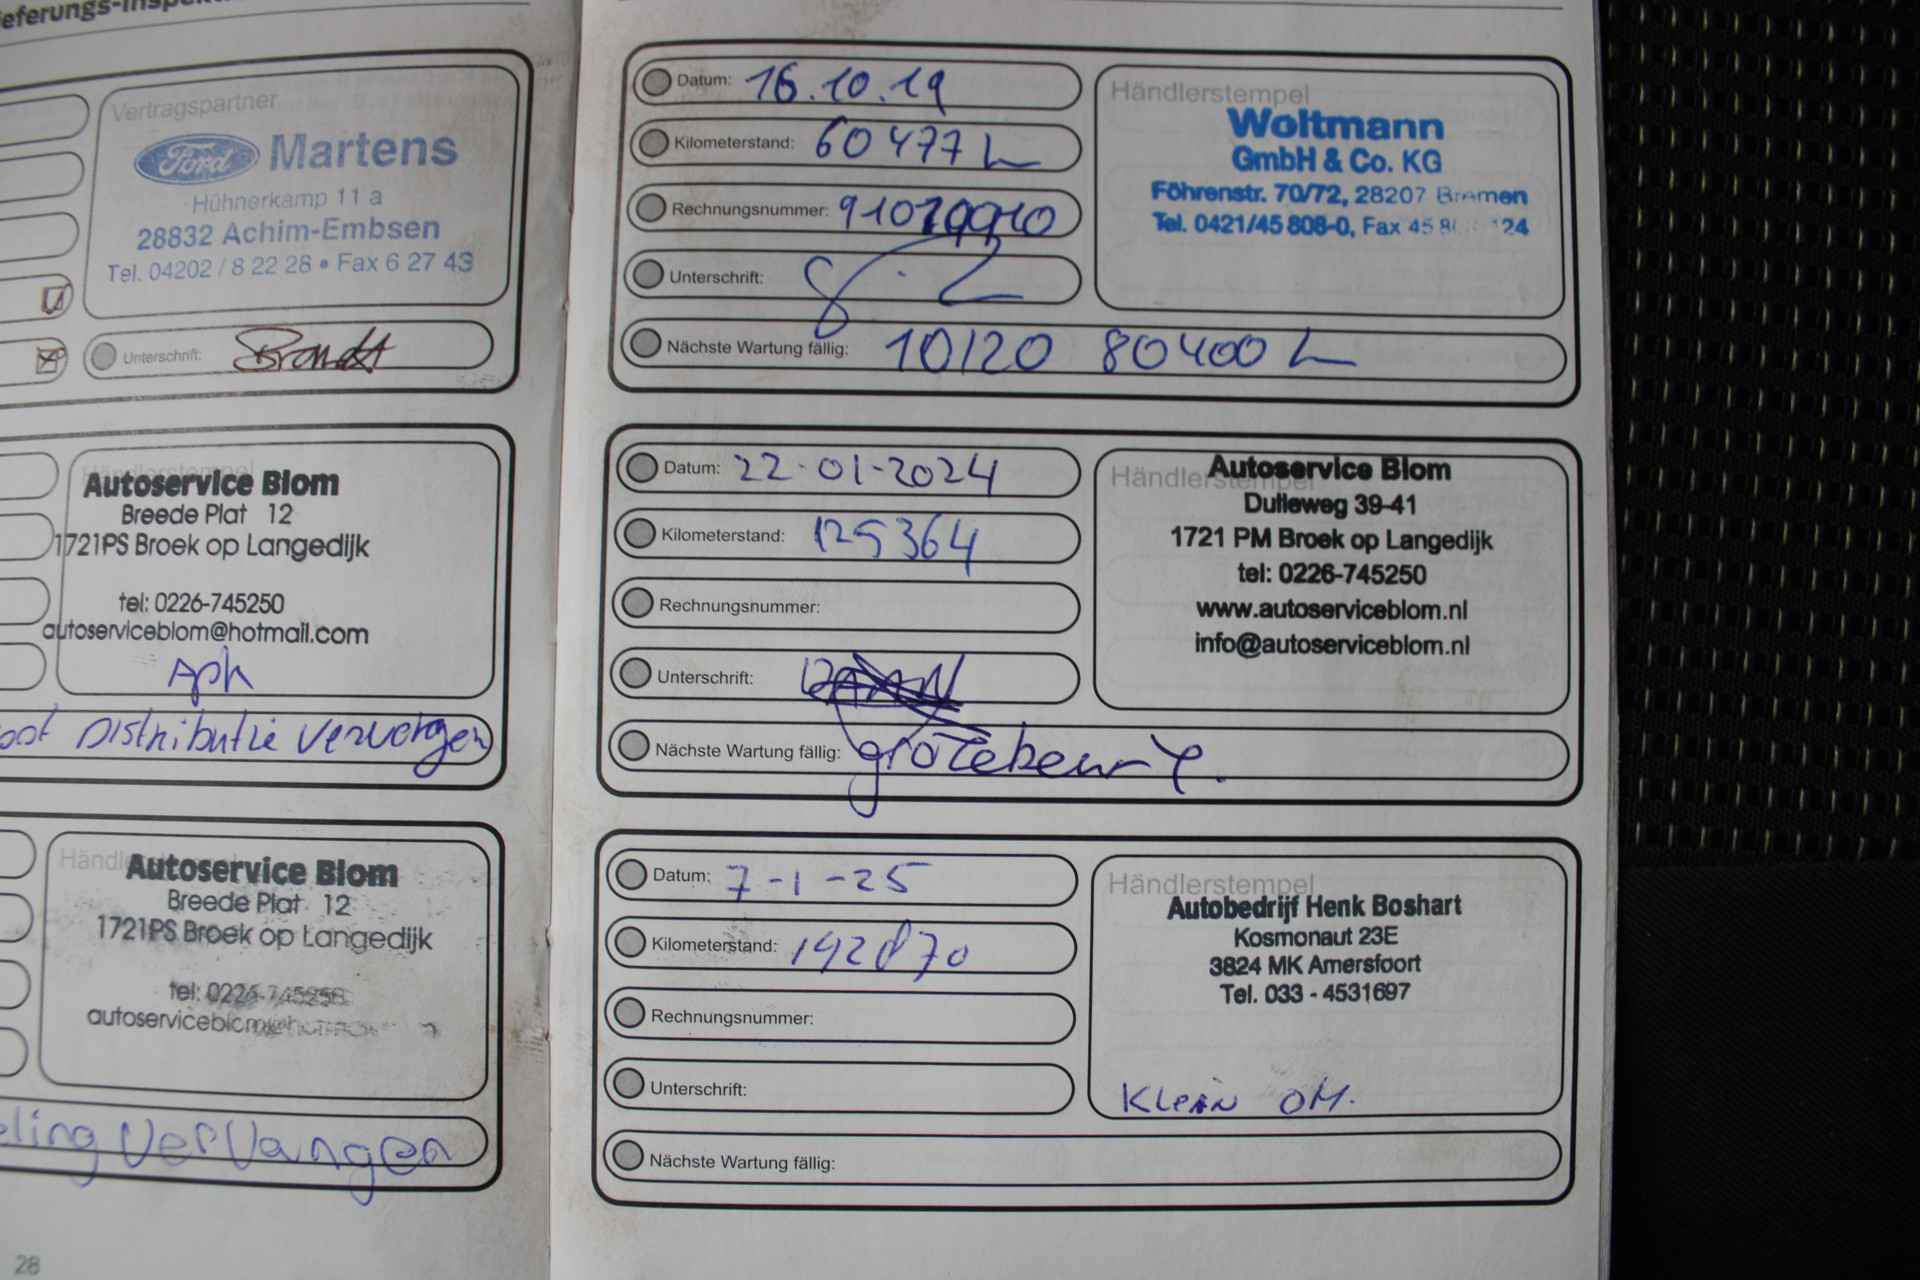 Vertragspartner
Ford Martens
Hühnerkamp 11 a
28832 Achim-Embsen
Tel. 04202 / 8 22 28 • Fax 6 27 43
Unterschrift: Brandt
Händlerstempel
Autoservice Blom
Breede Plat 12
1721PS Broek op Langedijk
tel: 0226-745250
autoserviceblom@hotmail.com
Apk
Distributie vervangen
Autoservice Blom
Breede Plat 12
1721PS Broek op Langedijk
tel: 0226-745250
vervangen
28
Datum: 16.10.19
Kilometerstand: 60477
Rechnungsnummer:
Unterschrift:
Nächste Wartung fällig: 10/20 80400
Händlerstempel
Woltmann
GmbH & Co. KG
Föhrenstr. 70/72, 28207 Bremen
Tel. 0421/45 808-0, Fax 45 124
Datum: 22-01-2024
Kilometerstand: 125364
Rechnungsnummer:
Unterschrift:
Nächste Wartung fällig: grotebeurt.
Händlerstempel
Autoservice Blom
Dulleweg 39-41
1721 PM Broek op Langedijk
tel: 0226-745250
www.autoserviceblom.nl
info@autoserviceblom.nl
Datum: 7-1-25
Kilometerstand: 142870
Rechnungsnummer:
Unterschrift:
Nächste Wartung fällig:
Händlerstempel
Autobedrijf Henk Boshart
Kosmonaut 23E
3824 MK Amersfoort
Tel. 033 - 4531697
Klein OH.